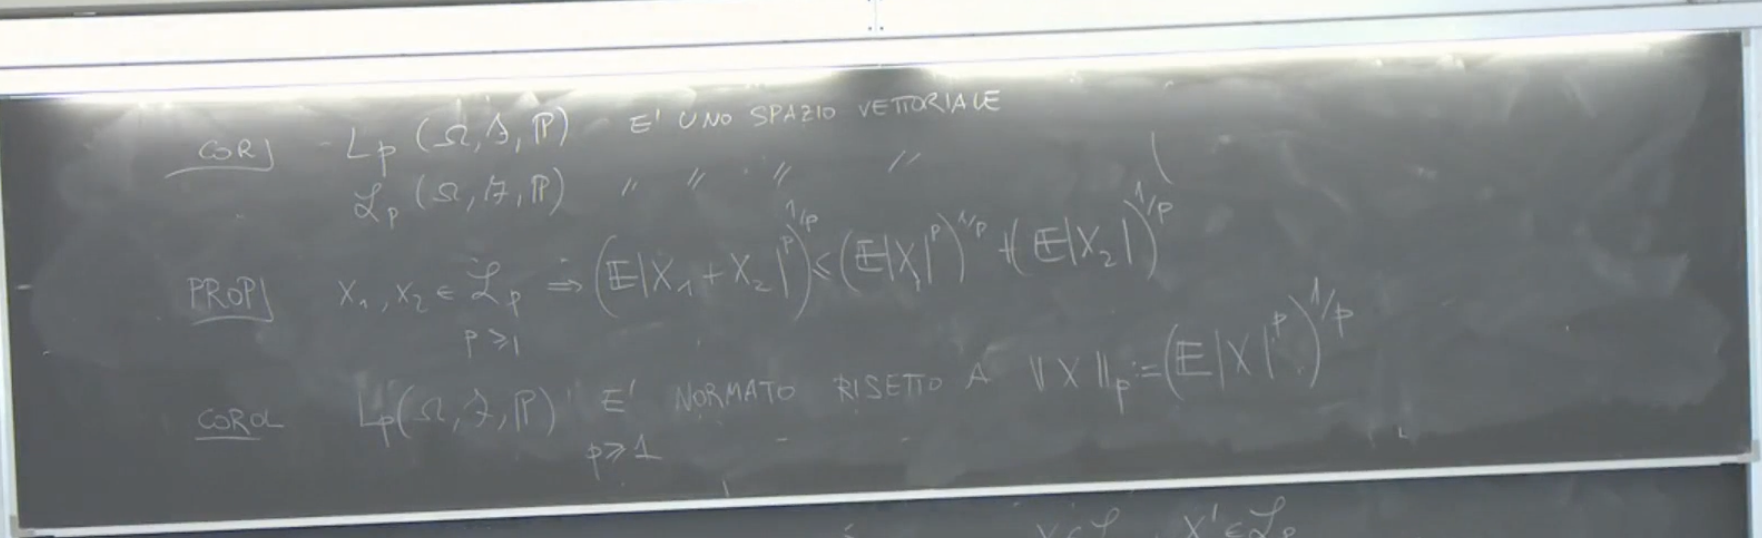 COR) L_p (Ω, F, ℙ) E' UNO SPAZIO VETTORIALE
ℒ_p (Ω, F, ℙ) " " " "
PROP) X_1, X_2 ∈ ℒ_p ⇒ (𝔼|X_1 + X_2|^p)^{1/p} ≤ (𝔼|X_1|^p)^{1/p} + (𝔼|X_2|)^{1/p}
p ≥ 1
COROL L_p (Ω, F, ℙ) E' NORMATO RISETTO A ‖X‖_p := (𝔼|X|^p)^{1/p}
p ≥ 1
X' ∈ ℒ_p